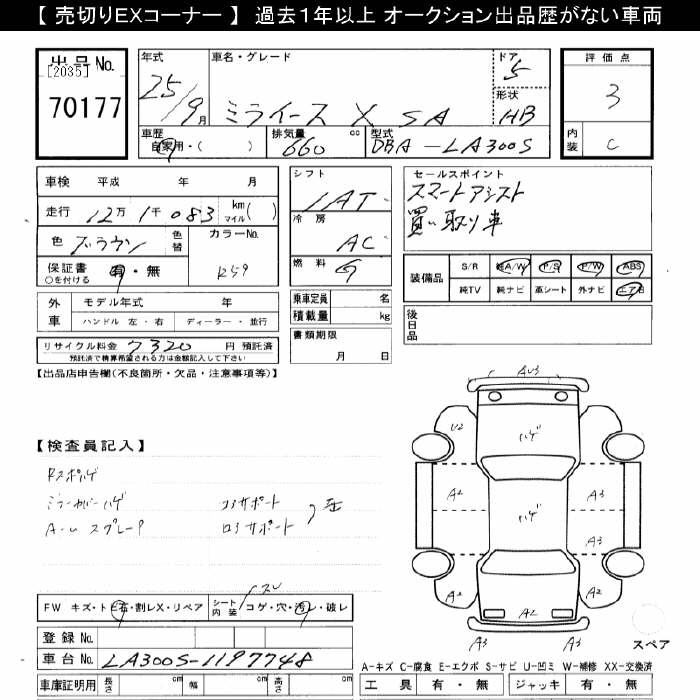 【 売切りEXコーナー 】 過去１年以上 オークション出品歴がない車両
出品No.
[2035]
70177
年式
25/9月
車名・グレード
ミライース X SA
ドア
5
形状
HB
車歴
自家用・( )
排気量
660 cc
型式
DBA-LA300S
評価点
3
内装
C
車検 平成 年 月
走行 12万 1千 083 km マイル( )
色 ブラウン
色替
カラーNo.
R59
保証書 有・無
○を付ける
外車
モデル年式 年
ハンドル 左・右 ディーラー・並行
リサイクル料金 7320 円 預託済
預託済で精算希望される方は金額記入して下さい
シフト
IAT
冷房
AC
燃料
G
乗車定員 名
積載量 kg
書類期限
月 日
セールスポイント
スマートアシスト
買い取り車
装備品
S/R 純A/W P/S P/W ABS
純TV 純ナビ 革シート 外ナビ エアB
後日品
【出品店申告欄(不良箇所・欠品・注意事項等)】
【検査員記入】
Rスポハゲ
ミラーカバーハゲ
A-ル スプレーP
コアサポート
ロアサポート
AU3
U2
ハゲ
A2
A3
ハゲ
A3
A2
A2
A3
A3
A3
スペア
FW キズ・トビ石・割レX・リペア
シート内装
スレ
コゲ・穴・汚レ・破レ
登録No.
車台No. LA300S-1197748
車庫証明用 長さ cm 幅 cm 高さ cm
A-キズ C-腐食 E-エクボ S-サビ U-凹ミ W-補修 XX-交換済
工具 有・無 ジャッキ 有・無